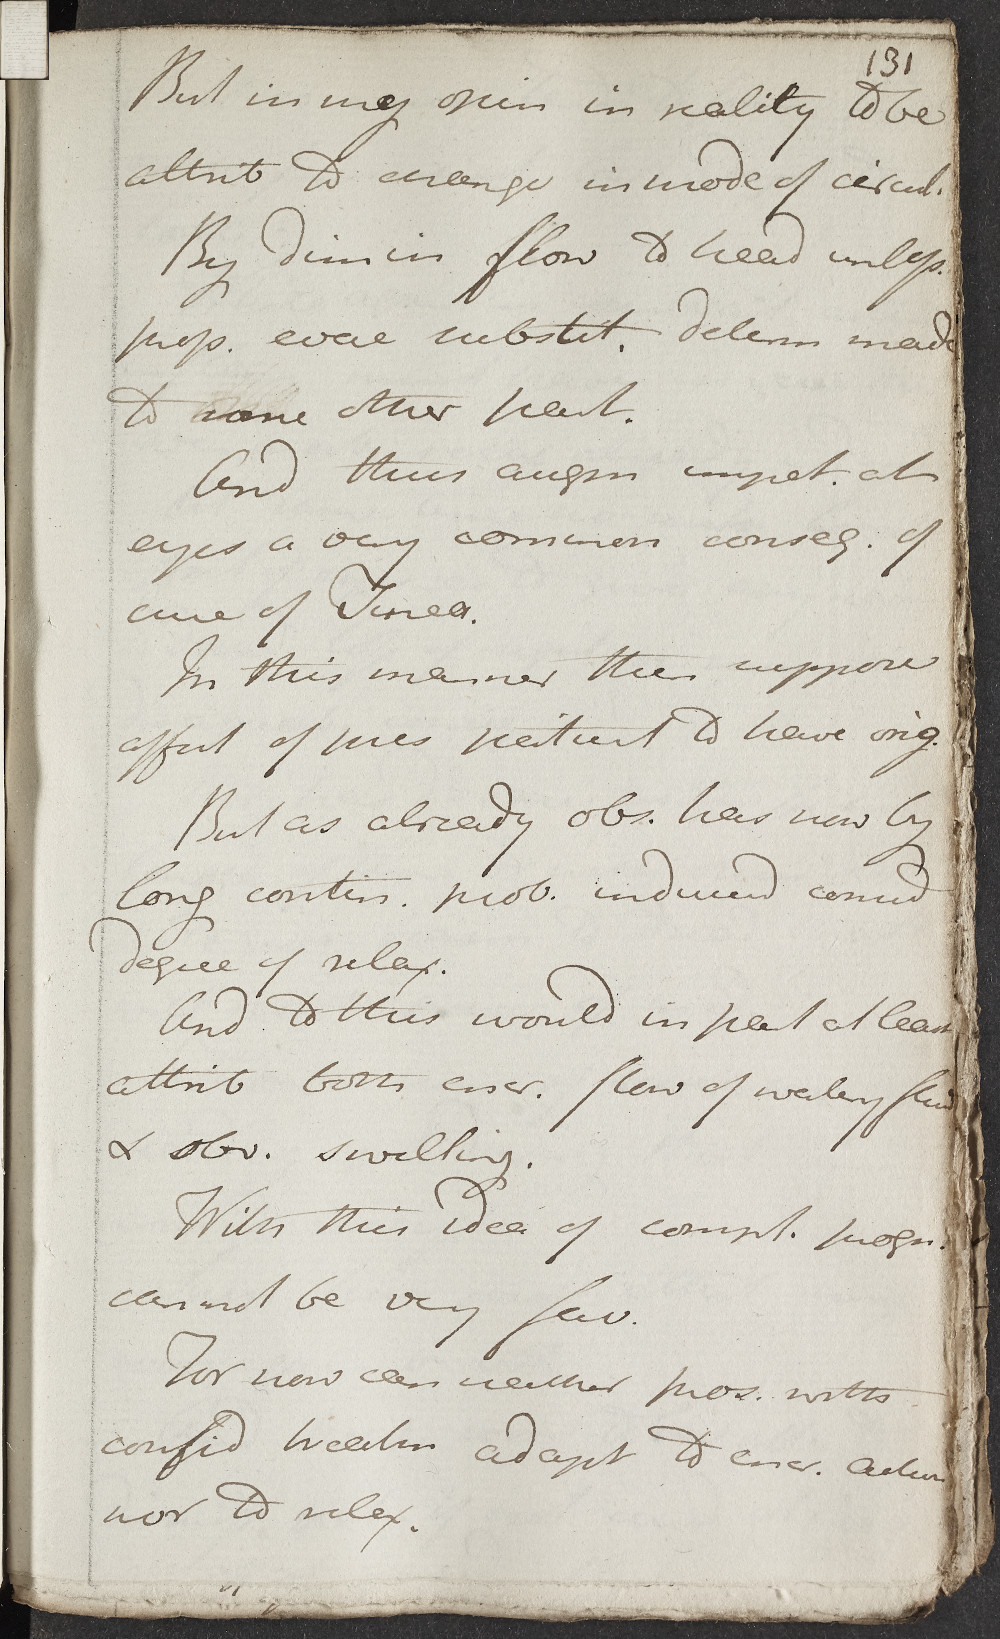 131
But in my opin in reality to be
attrib to change in mode of circul.
By dimin flow to head unless.
prop. evac substit. determ made
to some other part.
And thus augm impet. at
eyes a very common conseq. of
cure of Tinea.
In this manner then suppose
affect of pres patient to have orig.
But as already obs. has now by
long contin. prob. induced consid
degree of relax.
And to this would in part at least
attrib both incr. flow of watery fluid
& obv. swelling.
With this idea of compl. progn.
cannot be very fav.
For now can neither pros. with
confid treatm adapt to incr. action
nor to relax.